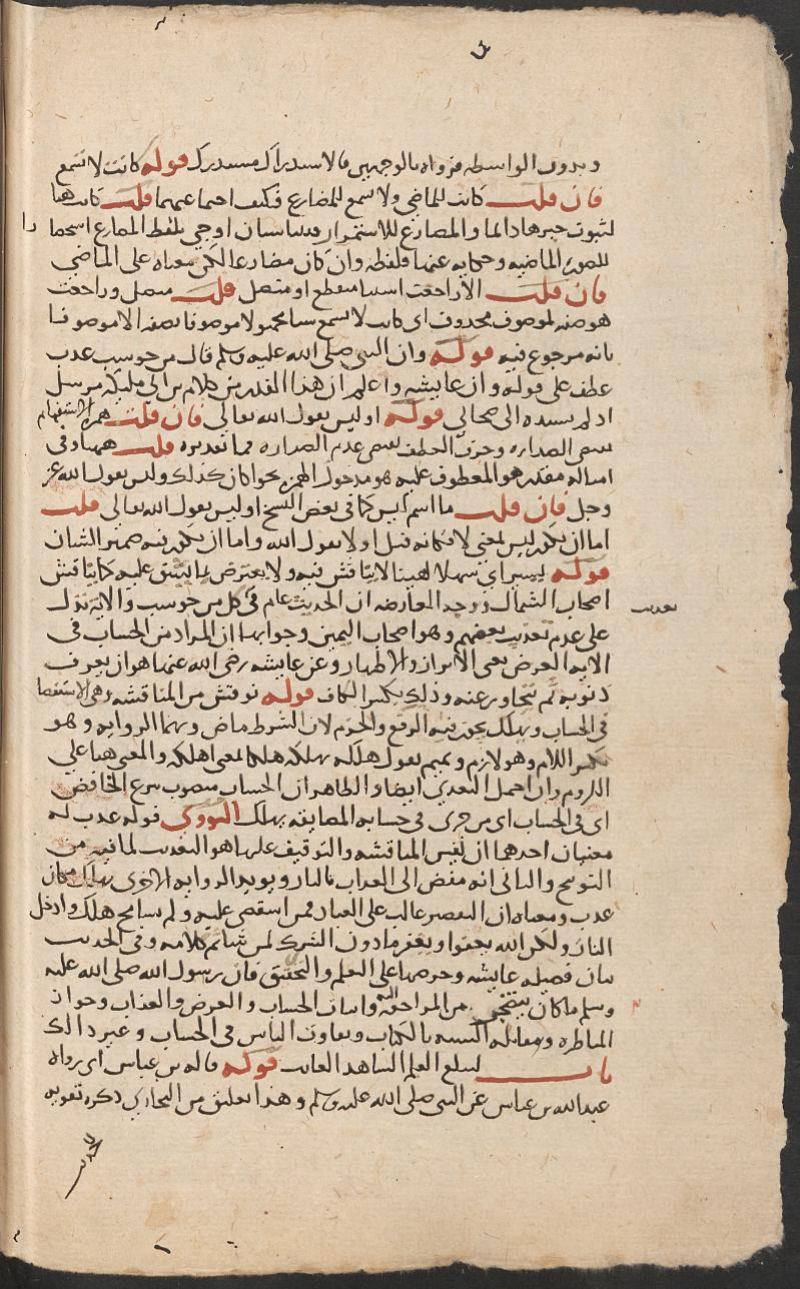 وبدون الواسطه فرواه بالوجهين فالاستدراك مستدرك قوله كانت لا تسمع
فان قلت كانت للماضي ولا تسمع للمضارع فكيف اجتماعهما قلت كانت هنا
لثبوت خبرها دائما والمضارع للاستمرار فيتناسبان او جي بلفظ المضارع استحضارا
للصورة الماضيه وحكاية عنها فلفظه وان كان مضارعا لكن معناه على الماضي
فان قلت الا راجعت استثنا منقطع او متصل قلت متصل وراجعت
هو صفه لموصوف محذوف اى كانت لا تسمع شيا مجهولا موصوفا بصفه الا موصوفا
بانه مرجوع فيه قوله وان النبي صلى الله عليه وسلم قال من حوسب عذب
عطف على قوله وان عايشه واعلم ان هذا القدر من كلام بن ابي مليكه مرسل
اذ لم يسنده الى صحابي قوله اوليس يقول الله تعالى فان قلت همزة الاستفهام
تقتضي الصداره وحرف العطف يقتضي عدم الصداره فما تقديره قلت ههنا وفي
امثاله مقدر هو المعطوف عليه هو مدخول الهمزه نحو اكان كذلك وليس يقول الله عز
وجل فان قلت ما اسم ليس كما في بعض النسخ اوليس يقول الله تعالى قلت
اما ان يكون ليس بمعنى لا فكانه قيل اولا يقول الله واما ان يكون فيه ضمير الشان
قوله يسيرا اي سهلا لا هينا لا يناقش فيه ولا يعترض بما يشق عليه كما يناقش
اصحاب الشمال ووجه المعارضه ان الحديث عام في كل من حوسب والايه تدل
على عدم تعذيب بعضهم وهو اصحاب اليمين وجوابها ان المراد من الحساب في
تعذيب
الايه العرض يعني الابراز والاظهار وعن عايشه رضي الله عنها هو ان يعرف
ذنوبه ثم يتجاوز عنه وذلك بكسر الكاف قوله نوقش من المناقشه وهي الاستقصا
في الحساب ويهلك يجوز فيه الرفع والجزم لان الشرط ماض وبهما الروايه وهو
بكسر اللام وهو لازم وتميم تقول هلكه يهلكه هلكا بمعنى اهلكه والمعنى هنا على
اللزوم وان احتمل التعدي ايضا والظاهر ان الحساب منصوب بنزع الخافض
اى في الحساب اى من جرى في حسابه المضايقه يهلك النووي قوله عذب له
معنيان احدهما ان نفس المناقشه والتوقيف عليها هو التعذيب لما فيه من
التوبيخ والثاني انه مفض الى العذاب بالنار ويويده الروايه الاخرى يهلك مكان
عذب ومعناه ان التقصير غالب على العباد فمن استقصى عليه ولم يسامح هلك وادخل
النار ولكن الله يعفو ويغفر ما دون الشرك لمن شا تم كلامه وفي الحديث
بيان فضيله عايشه وحرصها على العلم والتحقيق فان رسول الله صلى الله عليه
وسلم ما كان يتضجر من المراجعه اليه واثبات الحساب والعرض والعذاب وجواز
المناظره ومقابله السنه بالكتاب وتفاوت الناس في الحساب وغير ذالك
باب ليبلغ العلم الشاهد الغائب قوله قاله بن عباس اى رواه
عبد الله بن عباس عن النبي صلى الله عليه وسلم وهذا تعليق من البخاري ذكره تقويه